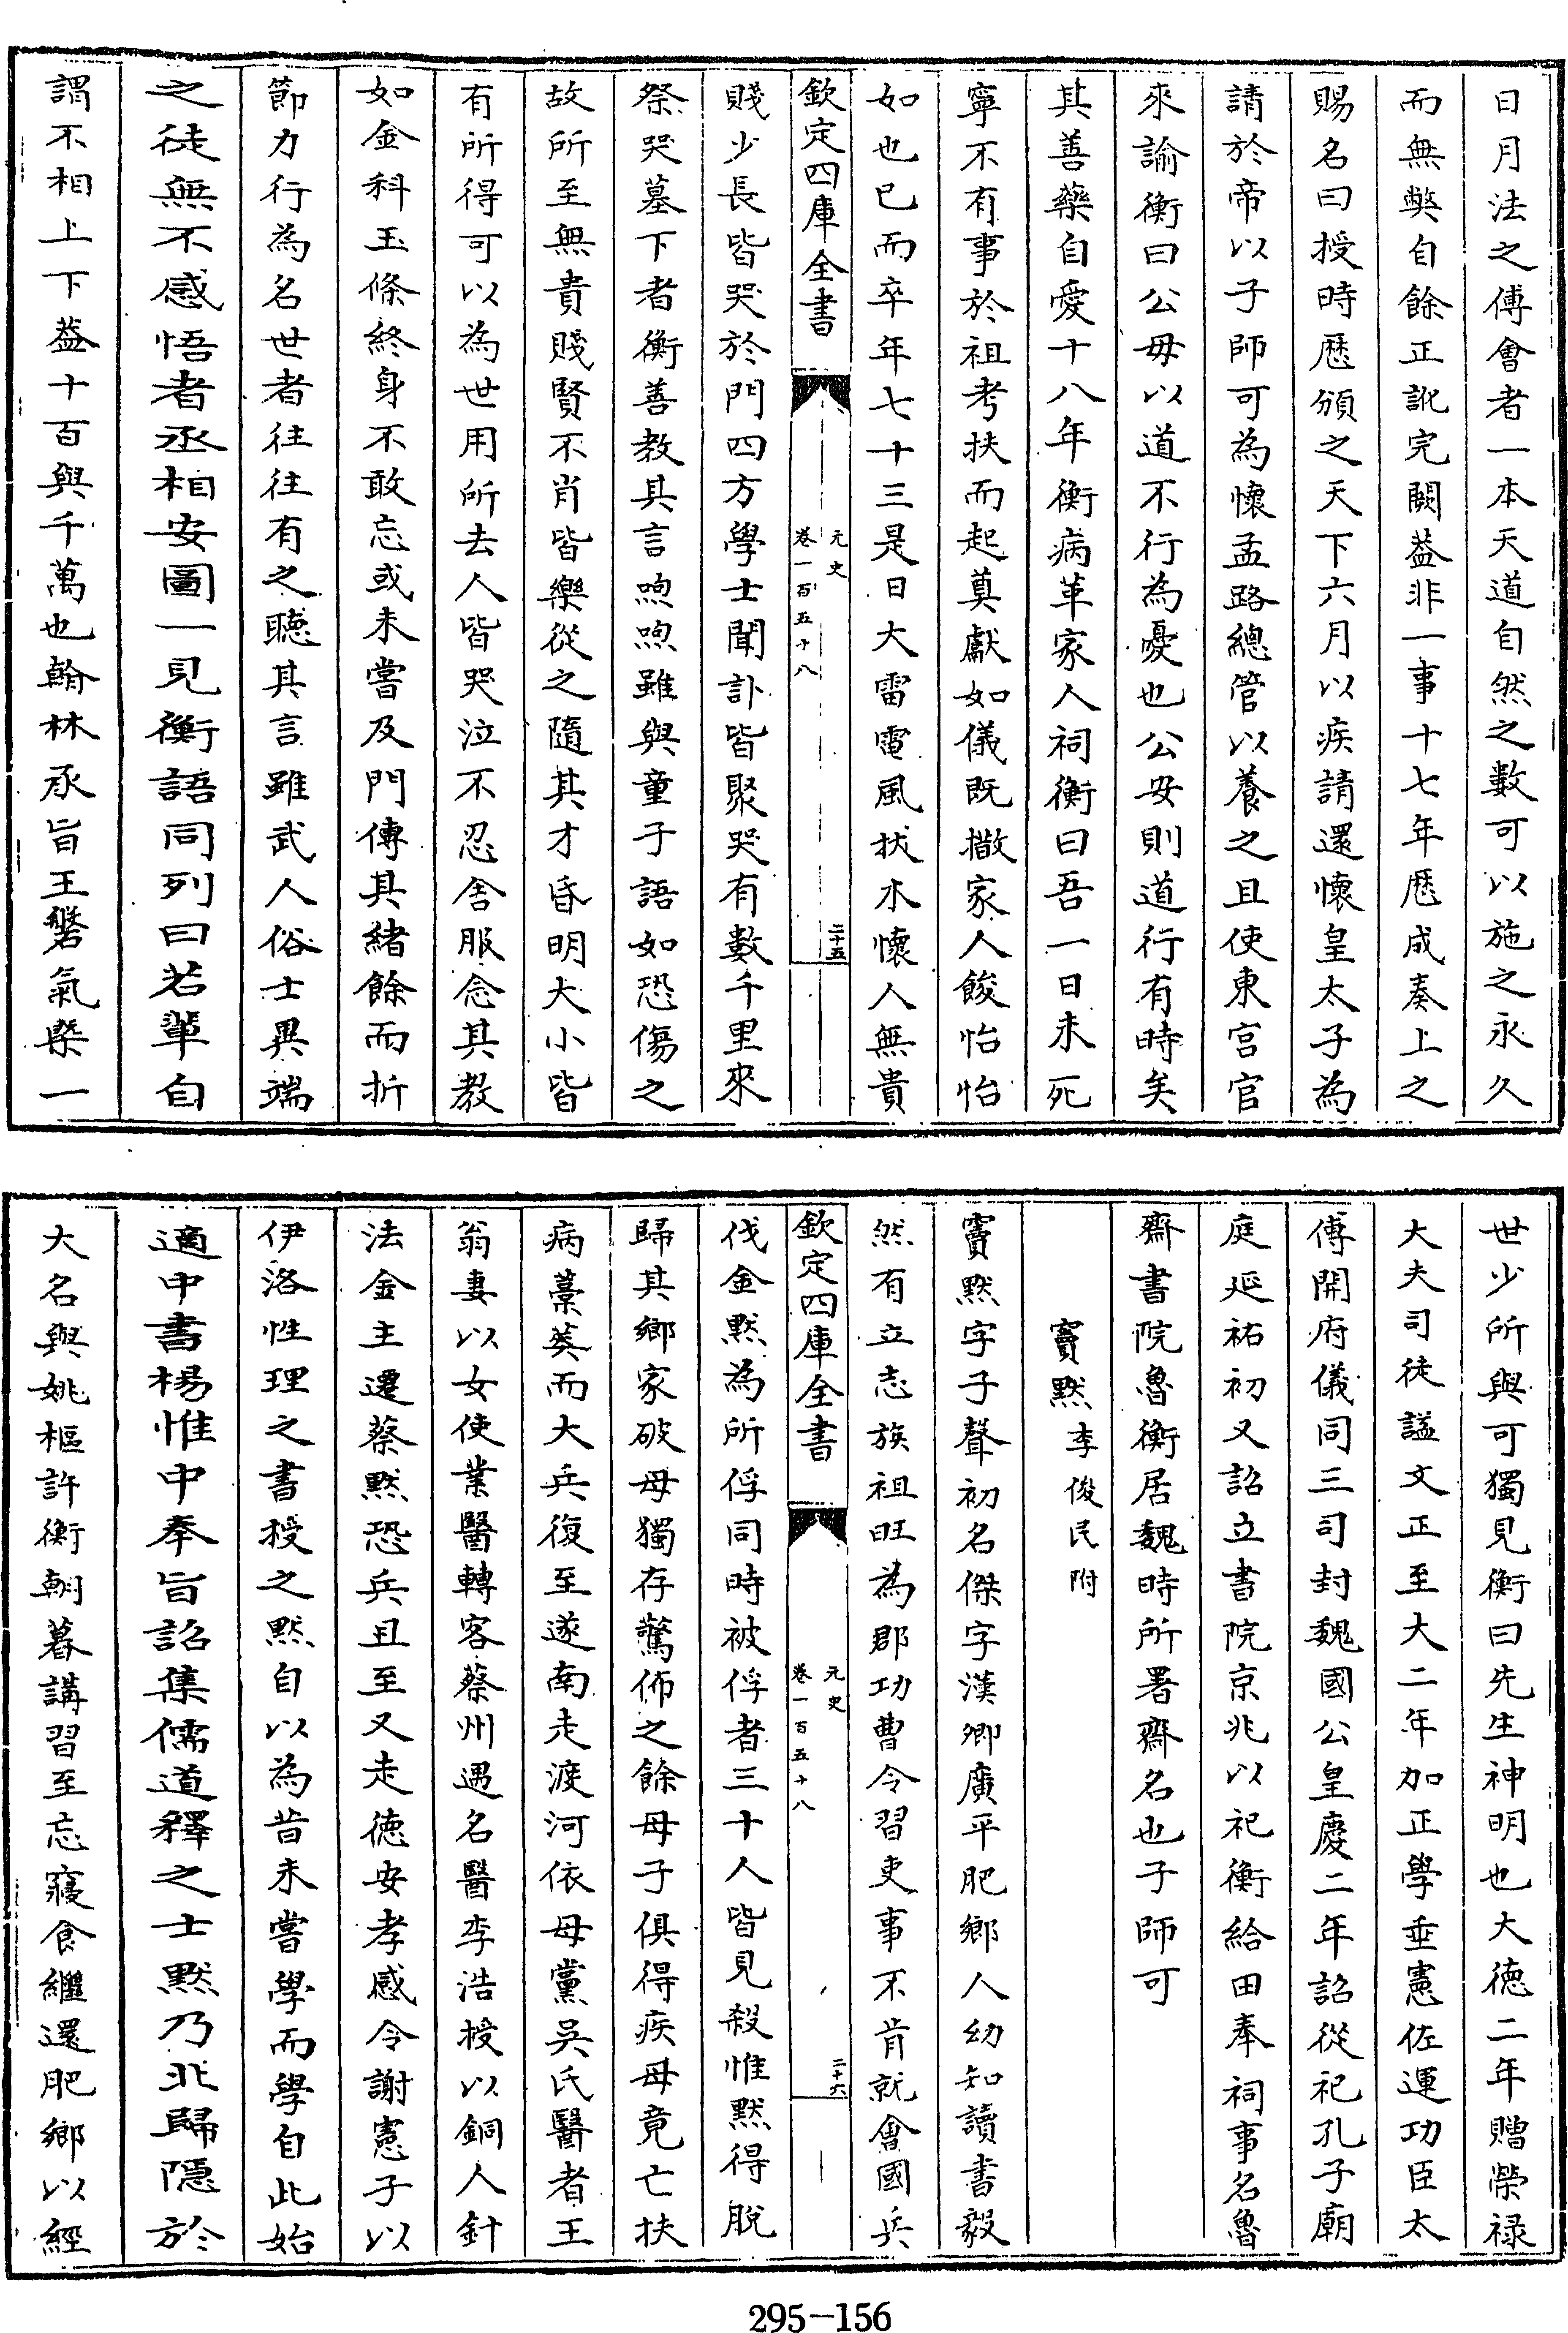 日月法之傅會者一本天道自然之數可以施之永久
而無弊自餘正訛完闕葢非一事十七年厯成奏上之
賜名曰授時厯頒之天下六月以疾請還懷皇太子為
請於帝以子師可為懷孟路總管以養之且使東宫官
來諭衡曰公毋以道不行為憂也公安則道行有時矣
其善藥自愛十八年衡病革家人祠衡曰吾一日未死
寧不有事於祖考扶而起奠獻如儀既撤家人餕怡怡
如也已而卒年七十三是日大雷電風拔木懷人無貴
欽定四庫全書
元史
卷一百五十八
二十五
賤少長皆哭於門四方學士聞訃皆聚哭有數千里來
祭哭墓下者衡善教其言喣喣雖與童子語如恐傷之
故所至無貴賤賢不肖皆樂從之隨其才昏明大小皆
有所得可以為世用所去人皆哭泣不忍舍服念其教
如金科玉條終身不敢忘或未嘗及門傳其緒餘而折
節力行為名世者往往有之聽其言雖武人俗士異端
之徒無不感悟者丞相安圖一見衡語同列曰若輩自
謂不相上下葢十百與千萬也翰林承旨王磐氣槩一
世少所與可獨見衡曰先生神明也大徳二年贈榮禄
大夫司徒諡文正至大二年加正學垂憲佐運功臣太
傅開府儀同三司封魏國公皇慶二年詔從祀孔子廟
庭延祐初又詔立書院京兆以祀衡給田奉祠事名魯
齋書院魯衡居魏時所署齋名也子師可
竇黙李俊民附
竇黙字子聲初名傑字漢卿廣平肥鄉人幼知讀書毅
然有立志族祖旺為郡功曹令習吏事不肯就會國兵
欽定四庫全書
元史
卷一百五十八
二十六
伐金黙為所俘同時被俘者三十人皆見殺惟黙得脫
歸其鄉家破母獨存驚怖之餘母子俱得疾母竟亡扶
病藁葬而大兵復至遂南走渡河依母黨吳氏醫者王
翁妻以女使業醫轉客蔡州遇名醫李浩授以銅人針
法金主遷蔡黙恐兵且至又走徳安孝感令謝憲子以
伊洛性理之書授之黙自以為昔未嘗學而學自此始
適中書楊惟中奉旨詔集儒道釋之士黙乃北歸隱於
大名與姚樞許衡朝暮講習至忘寢食繼還肥鄉以經
295-156